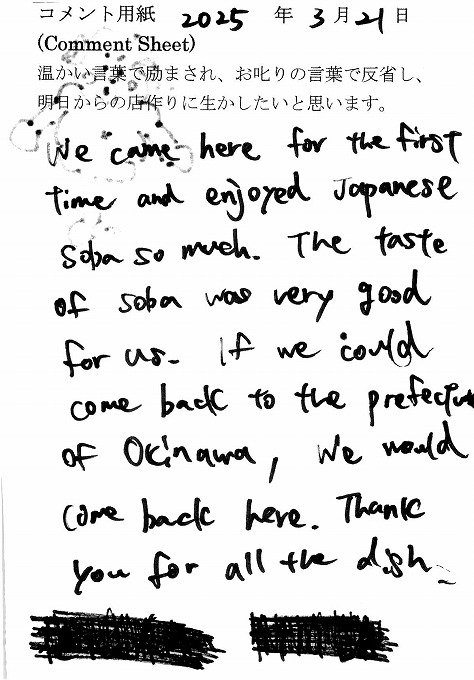 コメント用紙 2025 年 3 月 21 日
(Comment Sheet)
温かい言葉で励まされ、お叱りの言葉で反省し、
明日からの店作りに生かしたいと思います。
We came here for the first
time and enjoyed Japanese
soba so much. The taste
of soba was very good
for us. If we could
come back to the prefecture
of Okinawa, we would
come back here. Thank
you for all the dish.